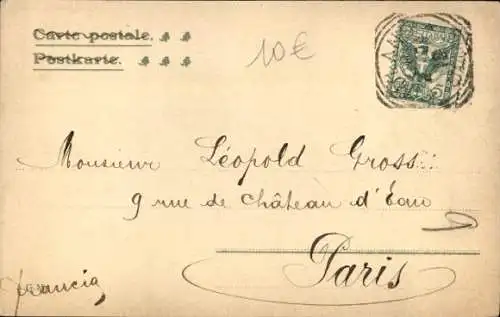 Carte postale.
Postkarte.
10€
Monsieur Léopold Gross
9 rue de château d'Eau
Paris
Francia